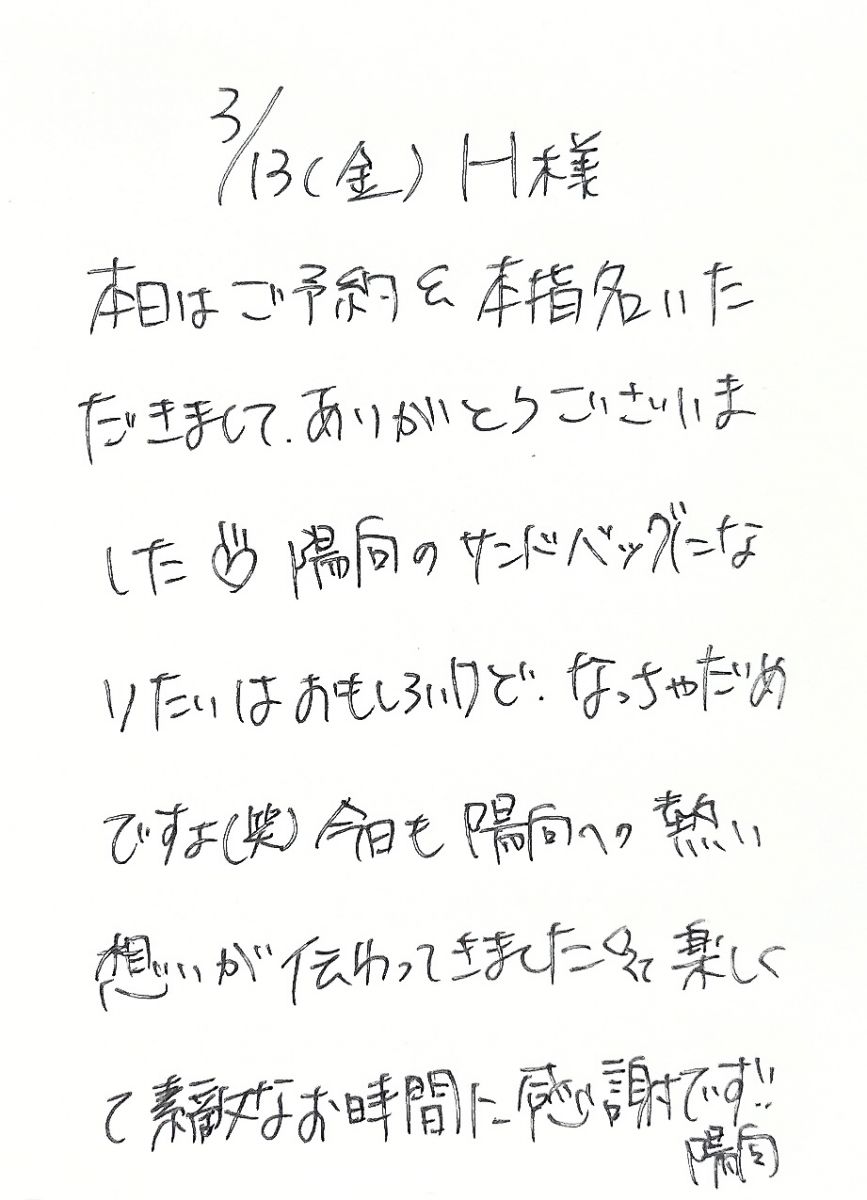 3/13(金) H様
本日はご予約&本指名いた
だきまして、ありがとうございま
した 陽向のサンドバッグにな
りたいはおもしろいけど、なっちゃだめ
ですよ(笑) 今日も陽向への熱い
想いが伝わってきました 楽しく
て素敵なお時間に感謝です!!
陽向